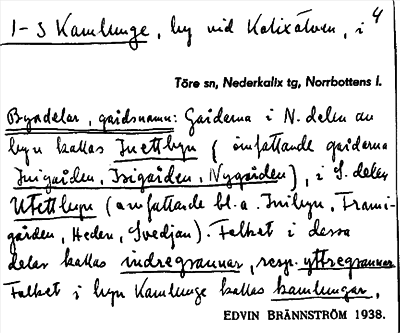 4
1-3 Kamlunge, by vid Kalixälven, i
Töre sn, Nederkalix tg, Norrbottens l.
Byadelar, gårdsnamn: Gårdarna i N. delen av
byn kallas Inettbyn (omfattande gårdarna
Inigården, Isigården, Nygården), i S. delen
Utettbyn (omfattande bl. a. Inibyn, Frami-
gården, Heden, Svedjan). Folket i dessa
delar kallas indregrannar, resp. yttregrannar.
Folket i byn Kamlunge kallas kamlungar.
EDVIN BRÄNNSTRÖM 1938.